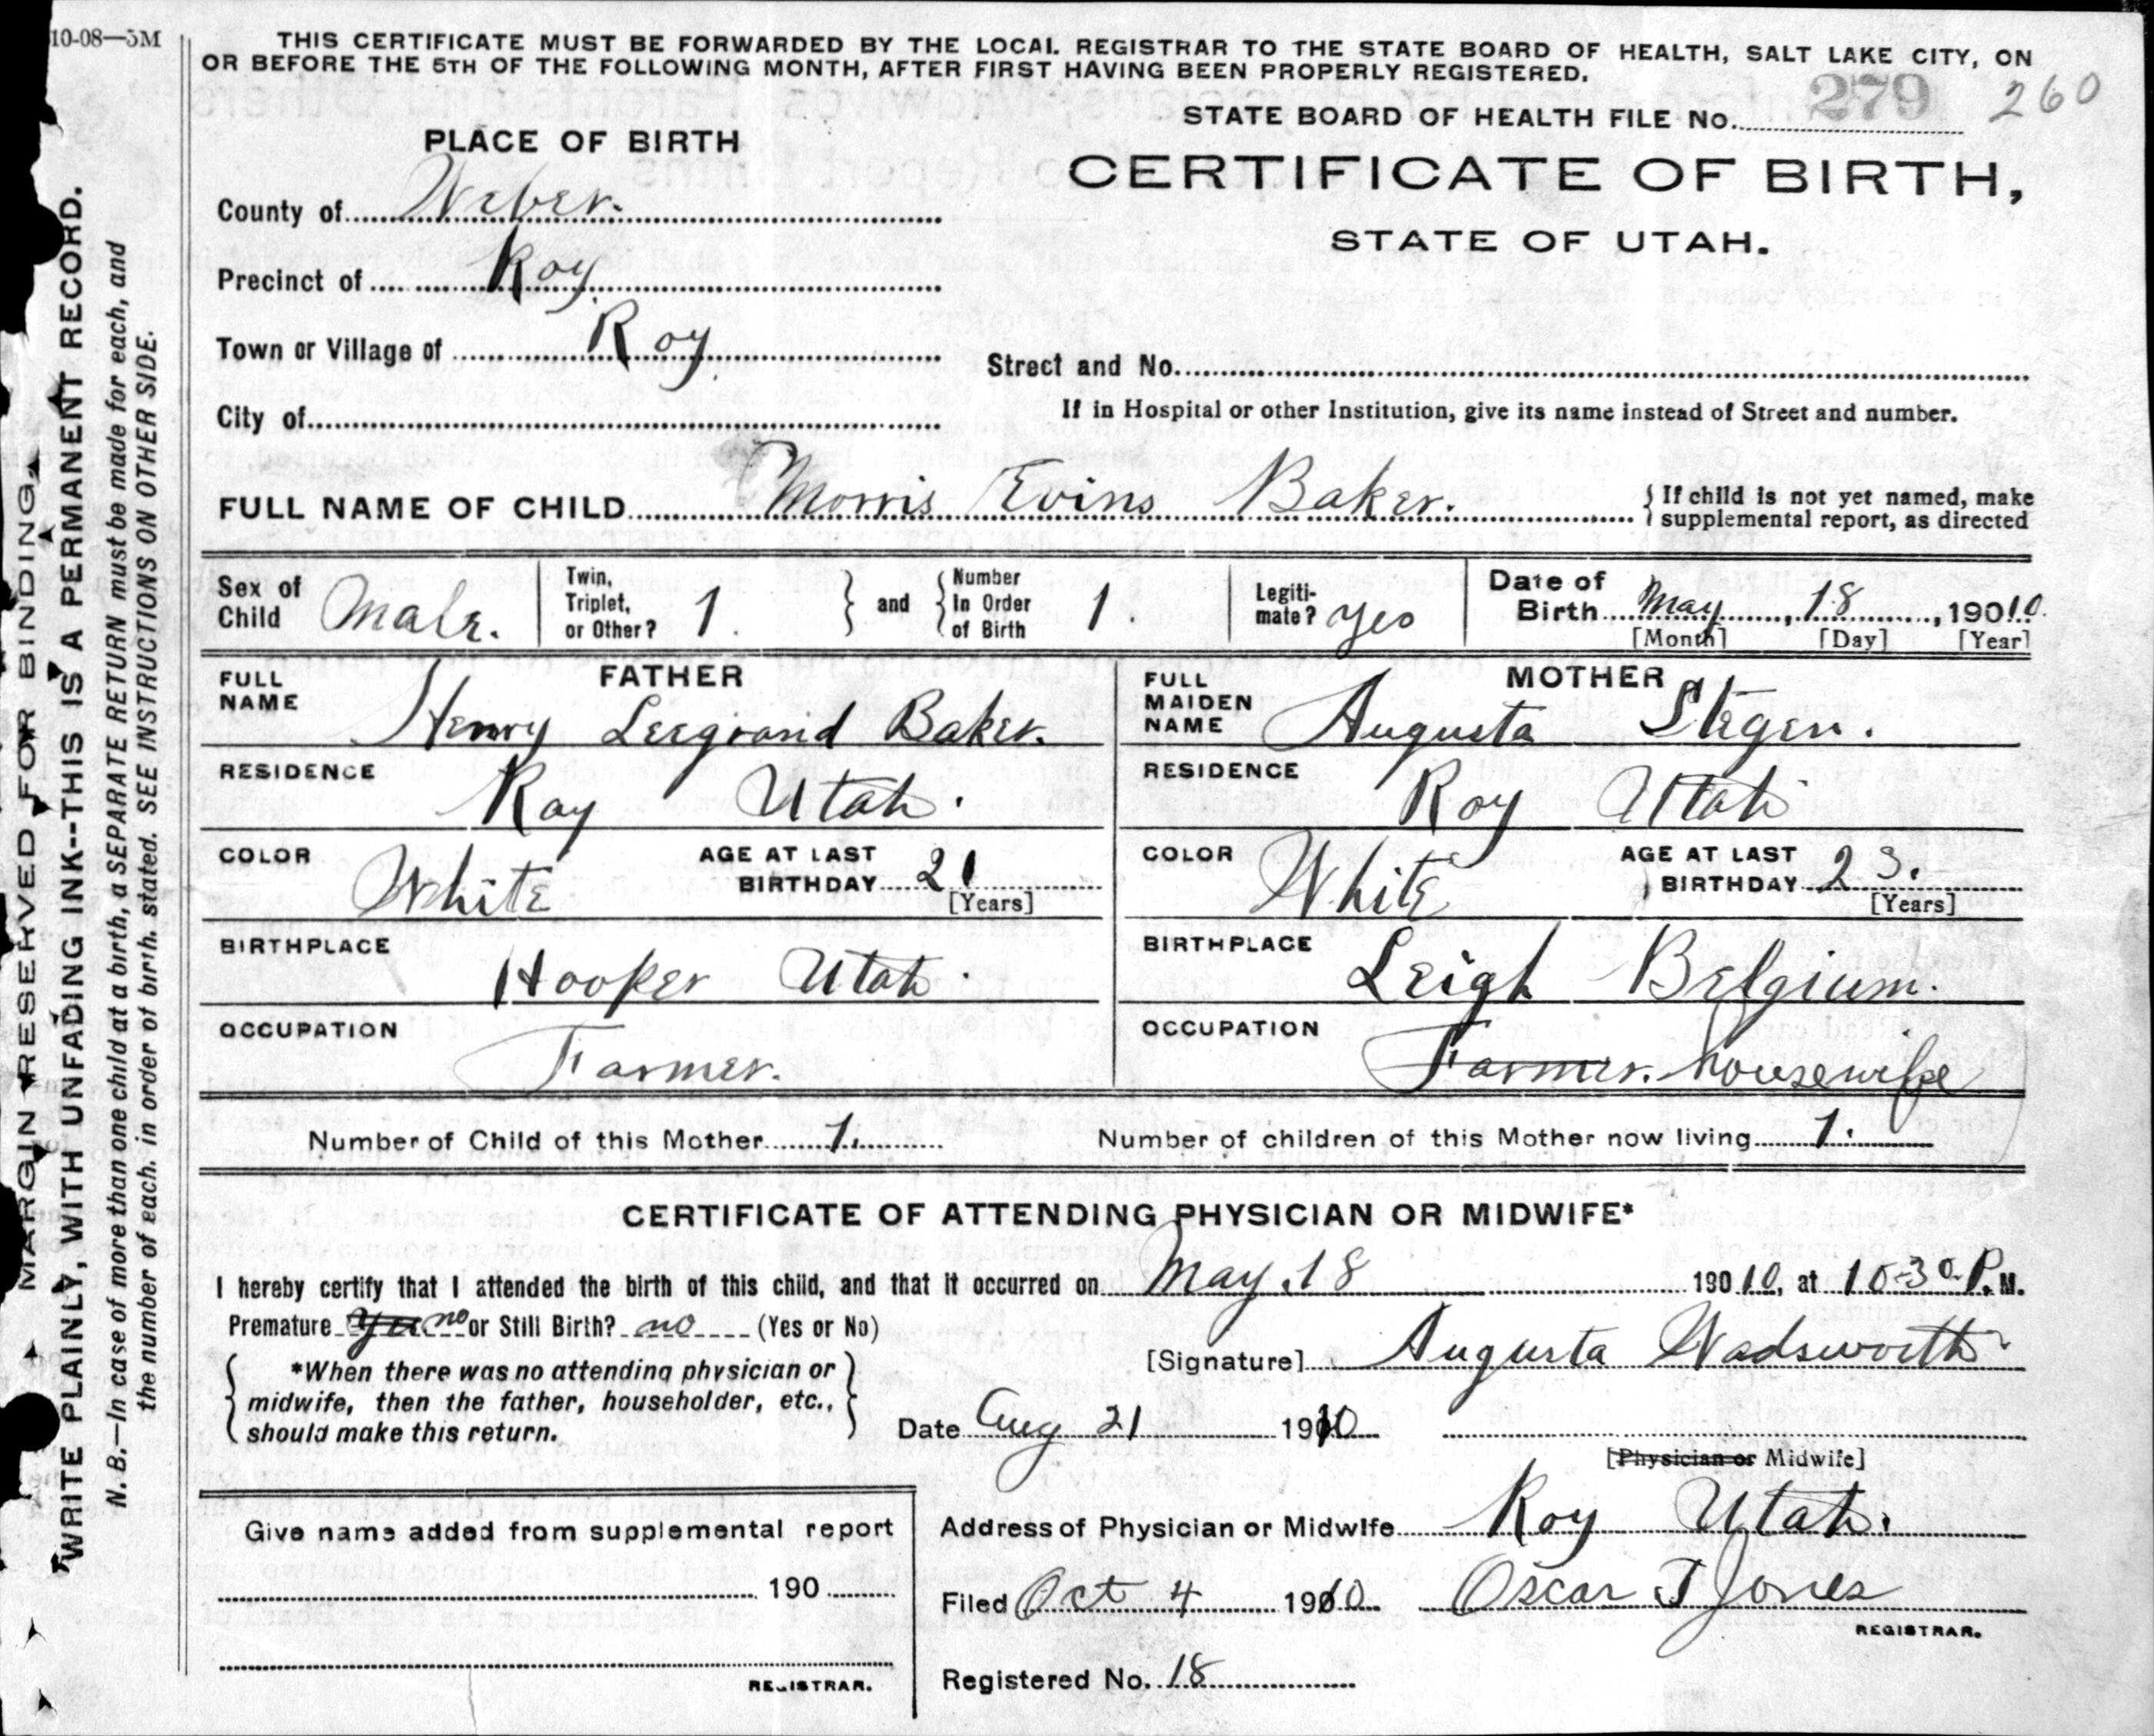 10-08—5M
THIS CERTIFICATE MUST BE FORWARDED BY THE LOCAL REGISTRAR TO THE STATE BOARD OF HEALTH, SALT LAKE CITY, ON
OR BEFORE THE 5TH OF THE FOLLOWING MONTH, AFTER FIRST HAVING BEEN PROPERLY REGISTERED.
STATE BOARD OF HEALTH FILE No. 279 260
PLACE OF BIRTH
CERTIFICATE OF BIRTH,
STATE OF UTAH.
County of Weber.
Precinct of Roy.
Town or Village of Roy.
Street and No.
City of
If in Hospital or other Institution, give its name instead of Street and number.
FULL NAME OF CHILD Morris Evins Baker. { If child is not yet named, make
supplemental report, as directed
Sex of Child Male. Twin, Triplet, or Other? 1. } and { Number In Order of Birth 1. Legiti- mate? yes Date of Birth May, 18, 19010.
[Month] [Day] [Year]
FATHER
FULL NAME Henry Leegrand Baker.
RESIDENCE Roy Utah.
COLOR White AGE AT LAST BIRTHDAY 21 [Years]
BIRTHPLACE Hooper Utah.
OCCUPATION Farmer.
MOTHER
FULL MAIDEN NAME Augusta Stegen.
RESIDENCE Roy Utah
COLOR White AGE AT LAST BIRTHDAY 23. [Years]
BIRTHPLACE Leigh Belgium.
OCCUPATION Farmer. housewife
Number of Child of this Mother 1. Number of children of this Mother now living 1.
CERTIFICATE OF ATTENDING PHYSICIAN OR MIDWIFE*
I hereby certify that I attended the birth of this child, and that it occurred on May. 18 19010, at 10-30 P. M.
Premature Yes no or Still Birth? no (Yes or No)
[Signature] Augusta Wadsworth
{ *When there was no attending physician or }
midwife, then the father, householder, etc.,
should make this return.
Date Aug 21 1910
[Physician or Midwife]
Address of Physician or Midwife Roy Utah.
Filed Oct 4 1910. Oscar T Jones
REGISTRAR.
Registered No. 18
Give name added from supplemental report
190
REGISTRAR.
MARGIN RESERVED FOR BINDING
WRITE PLAINLY, WITH UNFADING INK--THIS IS A PERMANENT RECORD.
N. B.—In case of more than one child at a birth, a SEPARATE RETURN must be made for each, and
the number of each, in order of birth, stated. SEE INSTRUCTIONS ON OTHER SIDE.